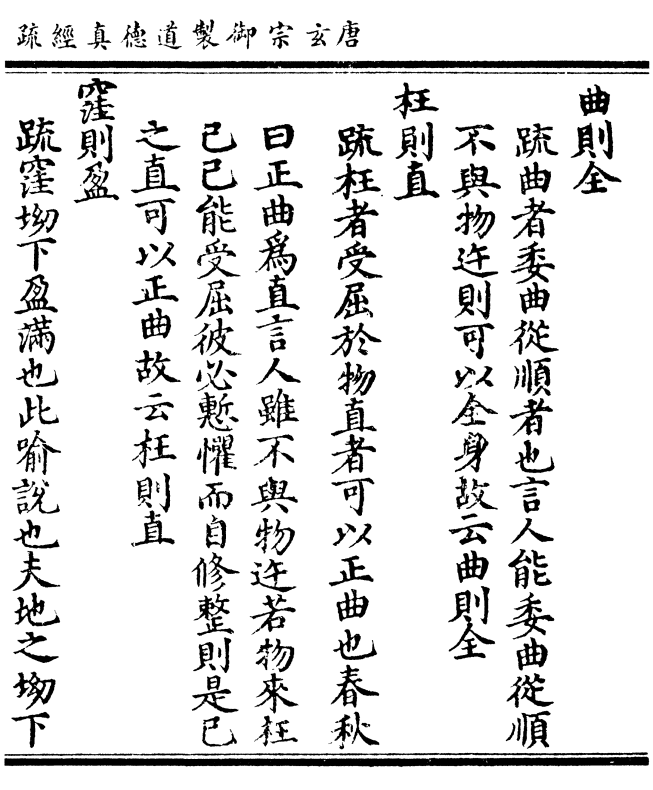 唐玄宗御製道德真經疏
曲則全
疏曲者委曲從順者也言人能委曲從順
不與物迕則可以全身故云曲則全
枉則直
疏枉者受屈於物直者可以正曲也春秋
曰正曲爲直言人雖不與物迕若物來枉
己己能受屈彼必慙懼而自修整則是己
之直可以正曲故云枉則直
窪則盈
疏窪坳下盈滿也此喻說也夫地之坳下